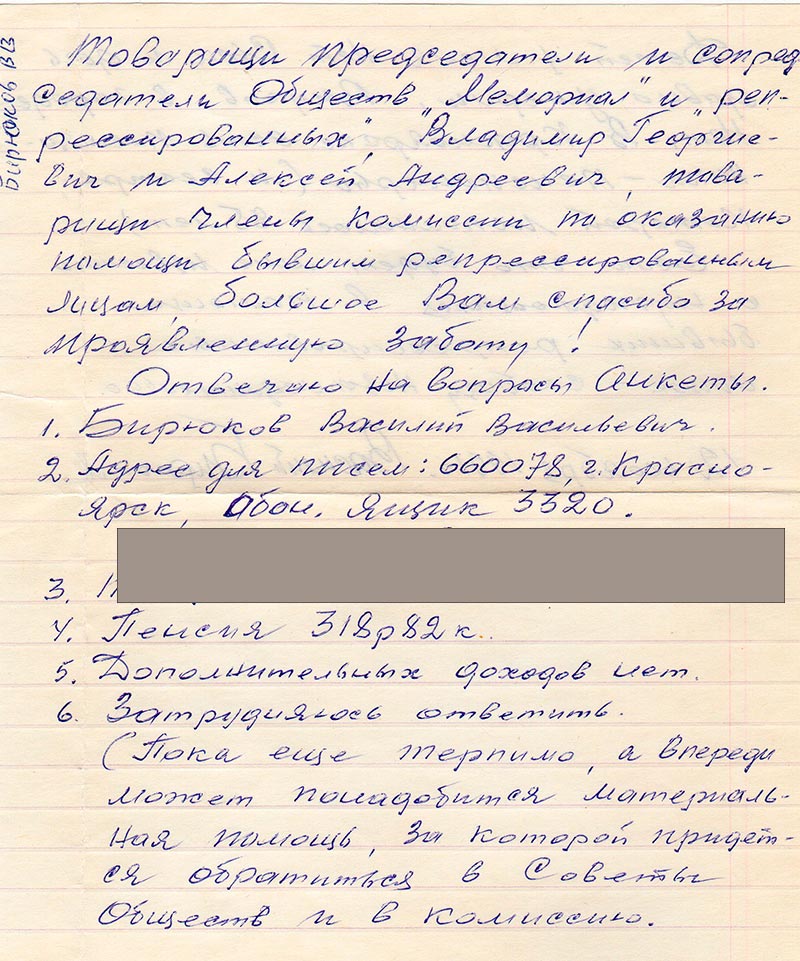 Бирюков ВВ
Товарищи председатели и сопред-
седатели Обществ "Мемориал" и "реп-
рессированных", Владимир Георгие-
вич и Алексей Андреевич, това-
рищи члены комиссии по оказанию
помощи бывшим репрессированным
лицам, большое Вам спасибо за
проявленную заботу!
Отвечаю на вопросы Анкеты.
1. Бирюков Василий Васильевич.
2. Адрес для писем: 660078, г. Красно-
ярск, Абон. Ящик 3320.
3.
4. Пенсия 318р82к.
5. Дополнительных доходов нет.
6. Затрудняюсь ответить.
(Пока еще терпимо, а впереди
может понадобится материаль-
ная помощь, за которой придет-
ся обратиться в Советы
Обществ и в комиссию.